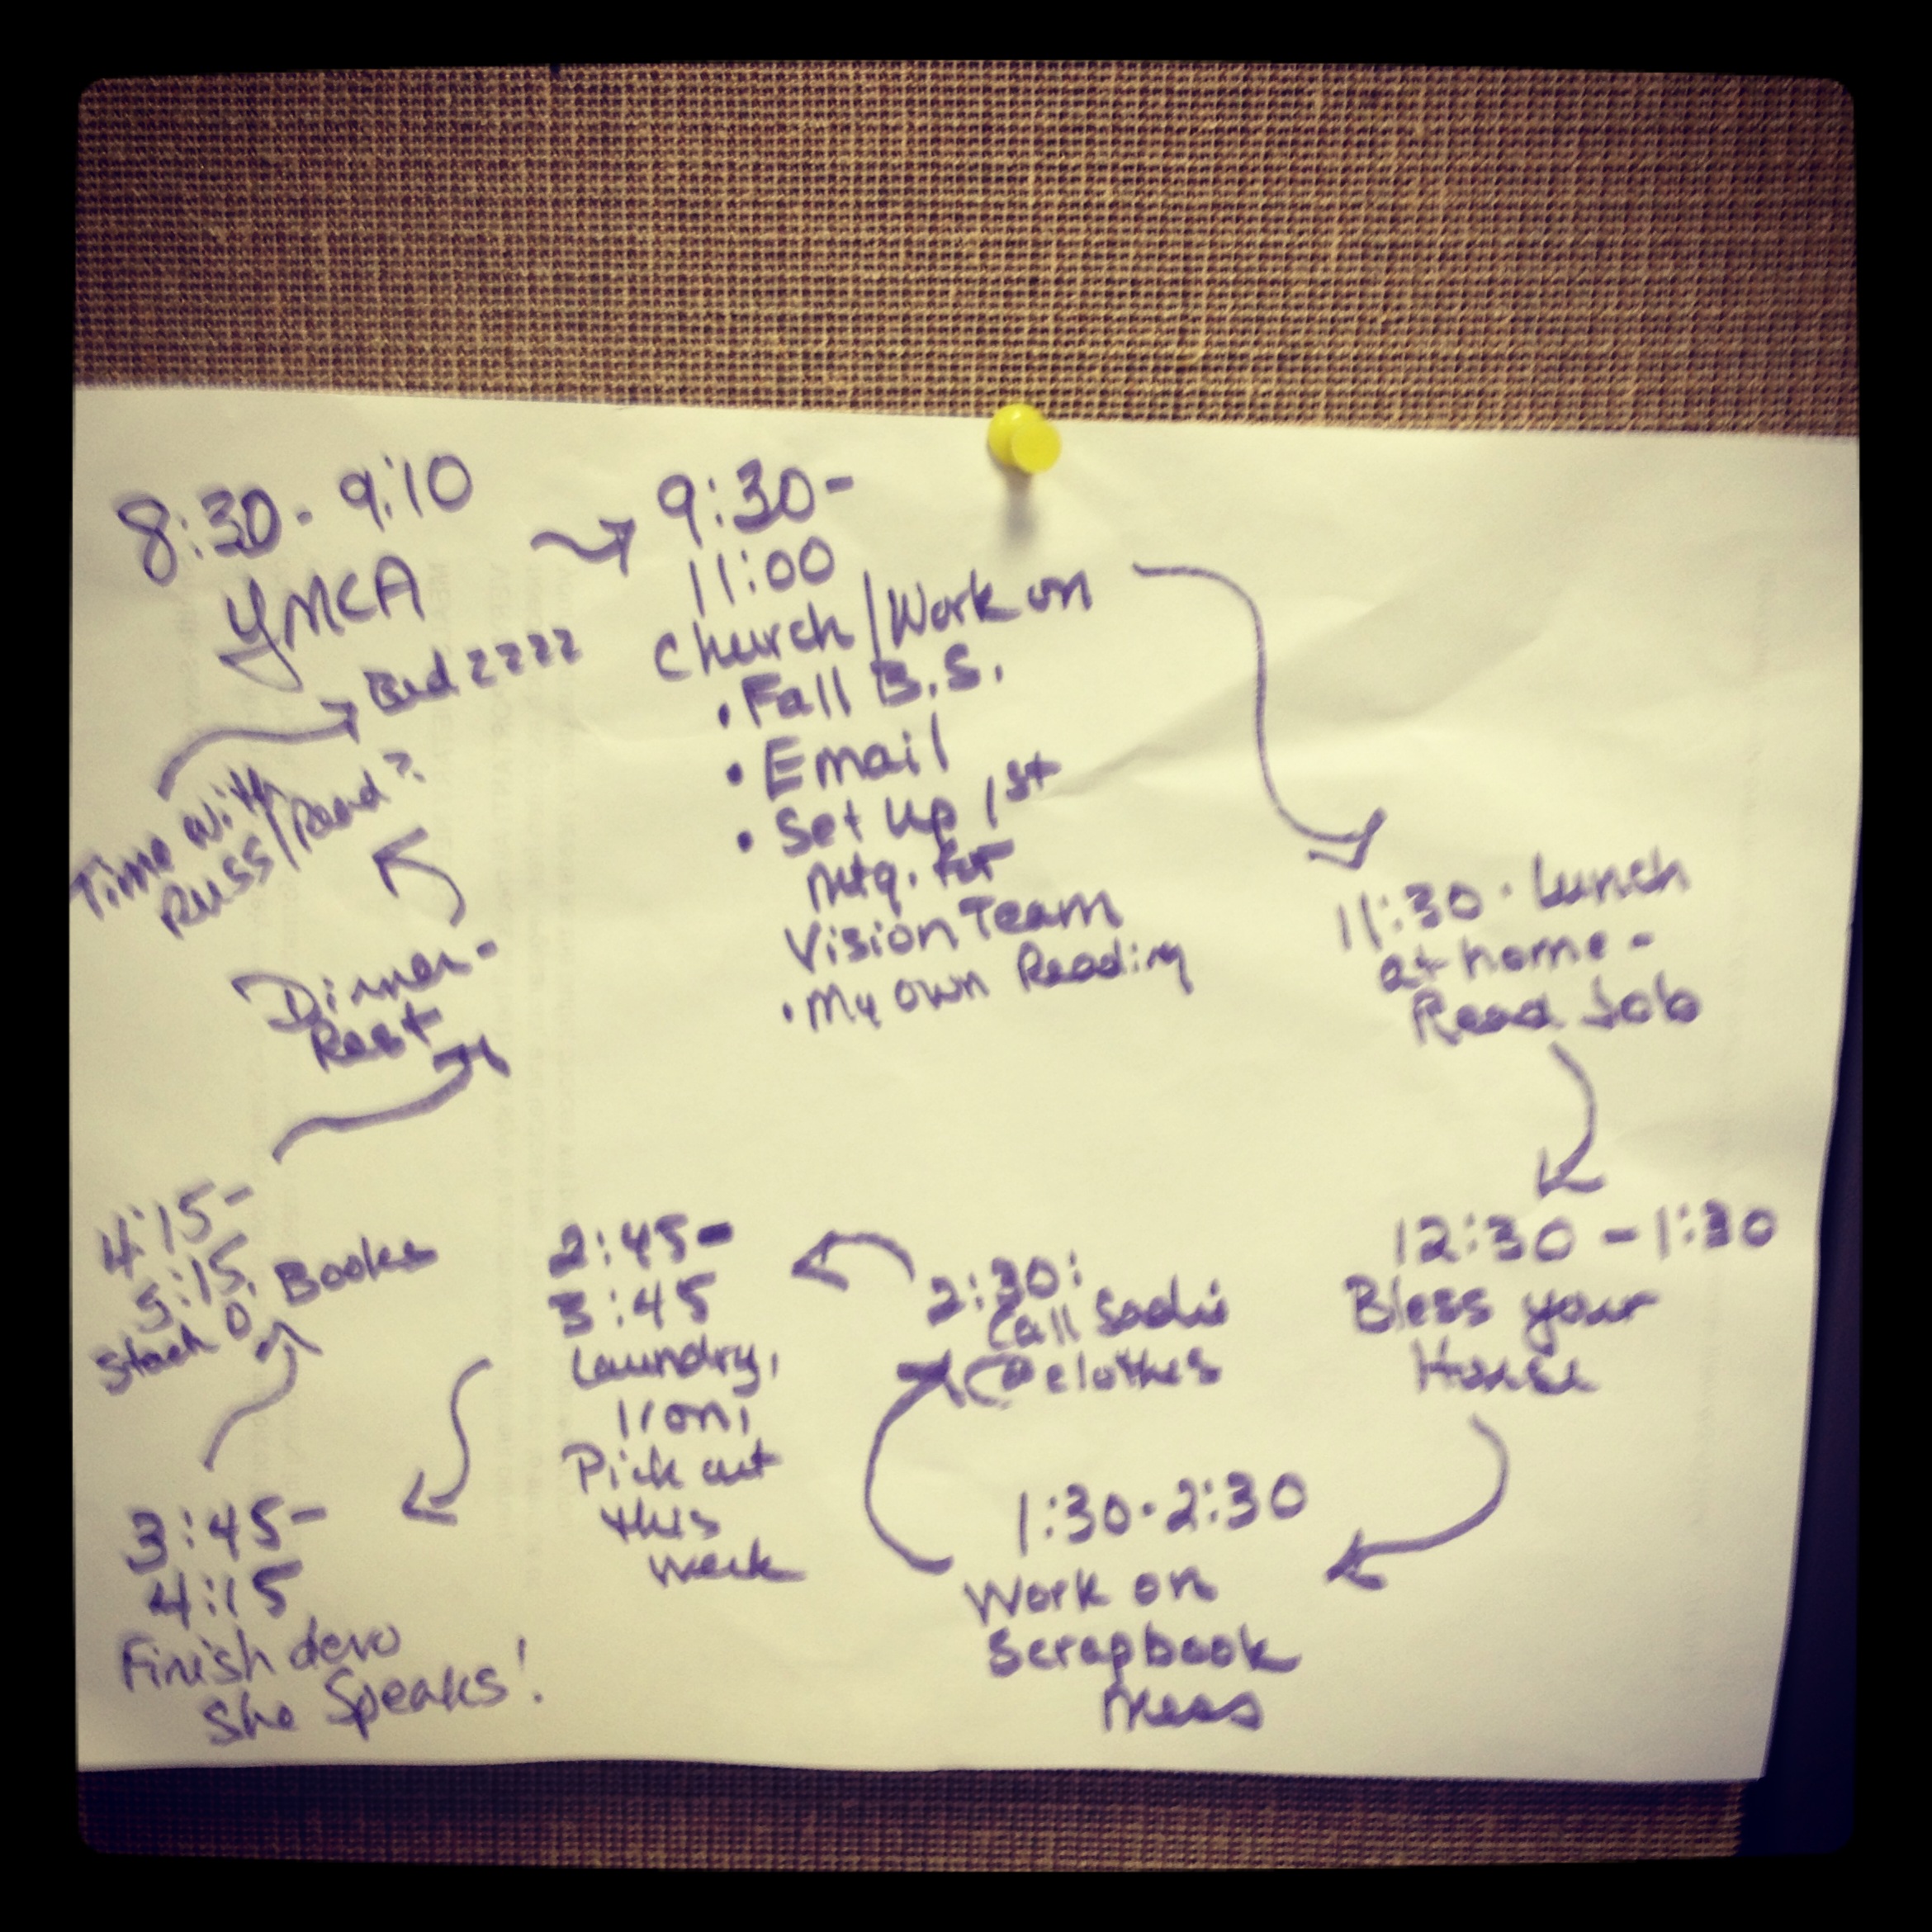 8:30 - 9:10
YMCA
9:30-
11:00
Church/Work on
• Fall B.S.
• Email
• Set up 1st
mtg. for
Vision Team
• My own Reading
11:30 - Lunch
at home -
Read Job
12:30 - 1:30
Bless your
House
1:30 - 2:30
Work on
Scrapbook
Mess
2:30:
Call Sadie
@ clothes
2:45-
3:45
Laundry,
Iron,
Pick out
this
week
3:45-
4:15
Finish devo
She Speaks!
4:15-
5:15.
Stack O Books
Dinner-
Rest
Time with
Russ/Read?
Bed zzzz